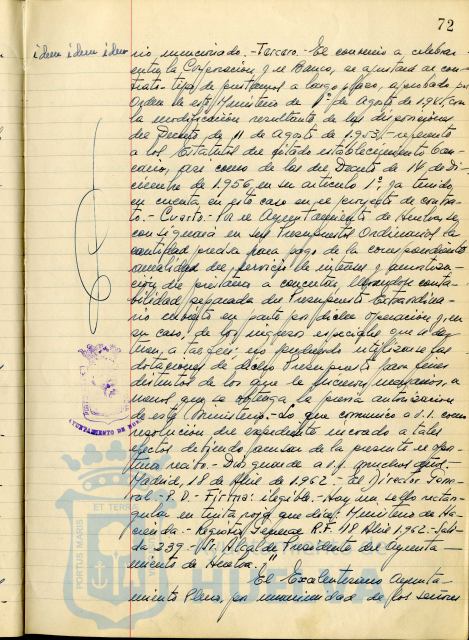 72
idem idem idem
rio mencionado.- Tercero.- El convenio a celebrar
entre la Corporación y el Banco, se ajustará al con-
trato-tipo, de préstamos a largo plazo, aprobado por
Orden de este Ministerio de 1º de agosto de 1945, con
la modificación resultante de las disposiciones
del Decreto de 11 de Agosto de 1.953,- referente
a los Estatutos del citado establecimiento ban-
cario, así como de las del Decreto de 14 de Di-
ciembre de 1.956, en su artículo 1º, ya tenido
en cuenta en este caso en el proyecto de contra-
to.- Cuarto.- Por el Ayuntamiento de Huelva se
consignará en sus Presupuestos Ordinarios la
cantidad precisa para pago de la correspondiente
anualidad del servicio de interés y amortiza-
ción de préstamo a concertar, llevándose conta-
bilidad separada del Presupuesto Extraordina-
rio cubierto en parte por dicha operación, y en
su caso, de los ingresos especiales que a des-
tinen a tal fin; no pudiendo utilizarse las
dotaciones de dicho Presupuesto para fines
distintos de los que le fueron asignados, a
menos que se obtenga la previa autorización
de este Ministerio.- Lo que comunico a V.I. como
resolución del expediente incoado a tales
efectos debiendo acusar de la presente el opor-
tuno recibo.- Dios guarde a V.I. muchos años.-
Madrid, 18 de Abril de 1.962.- El Director Gene-
ral.- P.D.- Firma: ilegible.- Hay un sello rectan-
gular en tinta roja que dice: Ministerio de Ha-
cienda.- Registro General R.F. 18 Abril 1962.- Sali-
da 239.- Sr. Alcalde Presidente del Ayunta-
miento de Huelva."
El Excelentísimo Ayunta-
miento Pleno, por unanimidad de los señores
AYUNTAMIENTO DE
PORTUS MARIS
ET TERRAE